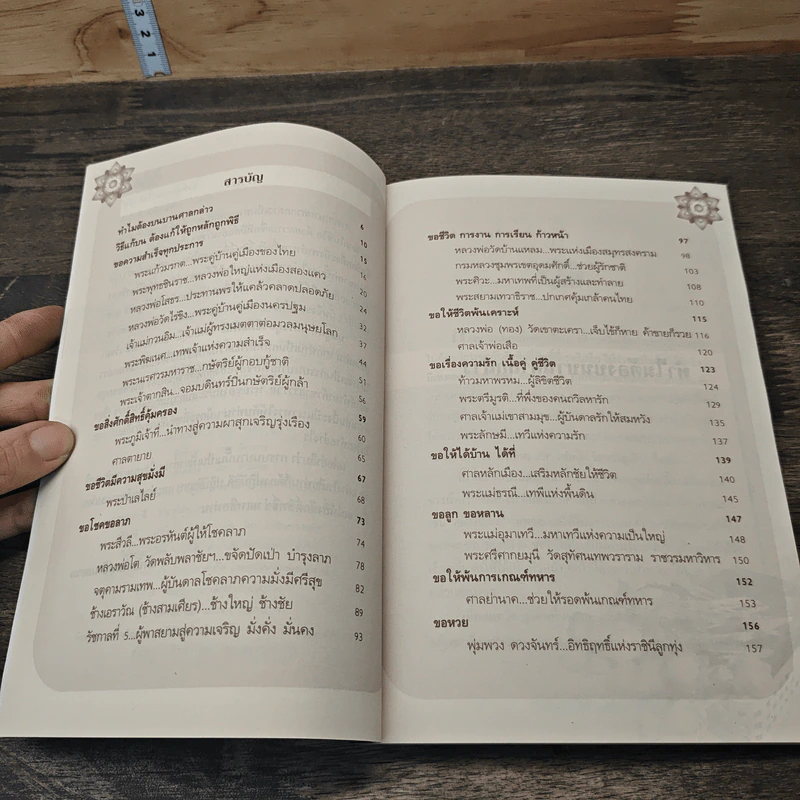 3 2 1
สารบัญ
ทำไมต้องบนบานศาลกล่าว 6
วิธีแก้บน ต้องแก้ให้ถูกหลักถูกพิธี 10
ขอความสำเร็จทุกประการ 15
พระแก้วมรกต...พระคู่บ้านคู่เมืองของไทย 16
พระพุทธชินราช...หลวงพ่อใหญ่แห่งเมืองสองแคว 20
หลวงพ่อโสธร...ประทานพรให้แคล้วคลาดปลอดภัย 24
หลวงพ่อวัดไร่ขิง...พระคู่บ้านคู่เมืองนครปฐม 32
เจ้าแม่กวนอิม...เจ้าแม่ผู้ทรงเมตตาต่อมวลมนุษยโลก 37
พระพิฆเนศ...เทพเจ้าแห่งความสำเร็จ 44
พระนเรศวรมหาราช...กษัตริย์ผู้กอบกู้ชาติ 51
พระเจ้าตากสิน...จอมบดินทร์ปิ่นกษัตริย์ผู้กล้า 55
ขอสิ่งศักดิ์สิทธิ์คุ้มครอง 59
พระภูมิเจ้าที่...นำทางสู่ความผาสุกเจริญรุ่งเรือง 60
ศาลตายาย 65
ขอชีวิตมีความสุขมั่งมี 67
พระป่าเลไลย์ 68
ขอโชคขอลาภ 73
พระสีวลี...พระอรหันต์ผู้ให้โชคลาภ 74
หลวงพ่อโต วัดพลับพลาชัยฯ...ขจัดปัดเป่า บำรุงลาภ 78
จตุคามรามเทพ...ผู้บันดาลโชคลาภความมั่งมีศรีสุข 82
ช้างเอราวัณ (ช้างสามเศียร)...ช้างใหญ่ ช้างชัย 89
รัชกาลที่ 5...ผู้พาสยามสู่ความเจริญ มั่งคั่ง มั่นคง 93
ขอชีวิต การงาน การเรียน ก้าวหน้า 97
หลวงพ่อวัดบ้านแหลม...พระแห่งเมืองสมุทรสงคราม 98
กรมหลวงชุมพรเขตอุดมศักดิ์...ช่วยผู้รักชาติ 103
พระศิวะ...มหาเทพที่เป็นผู้สร้างและทำลาย 108
พระสยามเทวาธิราช...ปกเกศคุ้มเกล้าคนไทย 110
ขอให้ชีวิตพ้นเคราะห์ 115
หลวงพ่อ (ทอง) วัดเขาตะเครา...เจ็บไข้ก็หาย ค้าขายก็รวย 116
ศาลเจ้าพ่อเสือ 120
ขอเรื่องความรัก เนื้อคู่ คู่ชีวิต 123
ท้าวมหาพรหม...ผู้ลิขิตชีวิต 124
พระตรีมูรติ...ที่พึ่งของคนถวิลหารัก 129
ศาลเจ้าแม่เขาสามมุข...ผู้บันดาลรักให้สมหวัง 135
พระลักษมี...เทวีแห่งความรัก 137
ขอให้ได้บ้าน ได้ที่ 139
ศาลหลักเมือง...เสริมหลักชัยให้ชีวิต 140
พระแม่ธรณี...เทพีแห่งพื้นดิน 145
ขอลูก ขอหลาน 147
พระแม่อุมาเทวี...มหาเทวีแห่งความเป็นใหญ่ 148
พระศรีศากยมุนี วัดสุทัศนเทพวราราม ราชวรมหาวิหาร 150
ขอให้พ้นการเกณฑ์ทหาร 152
ศาลย่านาค...ช่วยให้รอดพ้นเกณฑ์ทหาร 153
ขอหวย 156
พุ่มพวง ดวงจันทร์...อิทธิฤทธิ์แห่งราชินีลูกทุ่ง 157